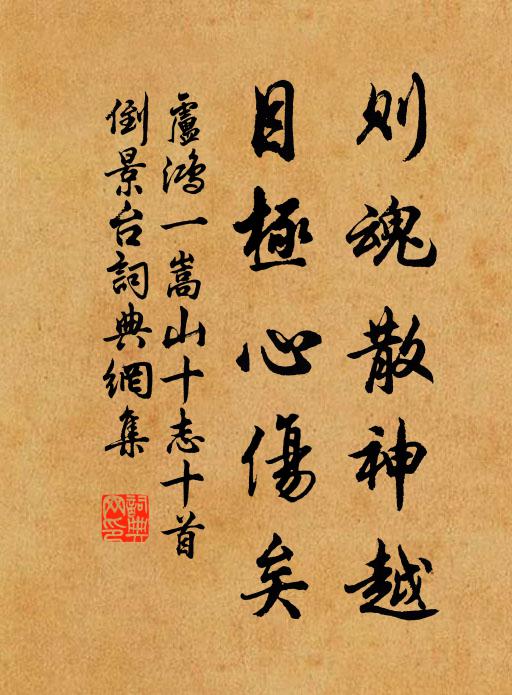 則魂散神越
目極心傷矣
盧鴻一嵩山十志十首
倒景台詞典網集
詞典網印